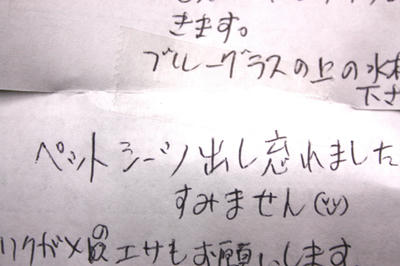 きます。
ブルーグラスの上の水
下さ
ペットシーツ出し忘れました
すみません
リクガメのエサもお願いします。